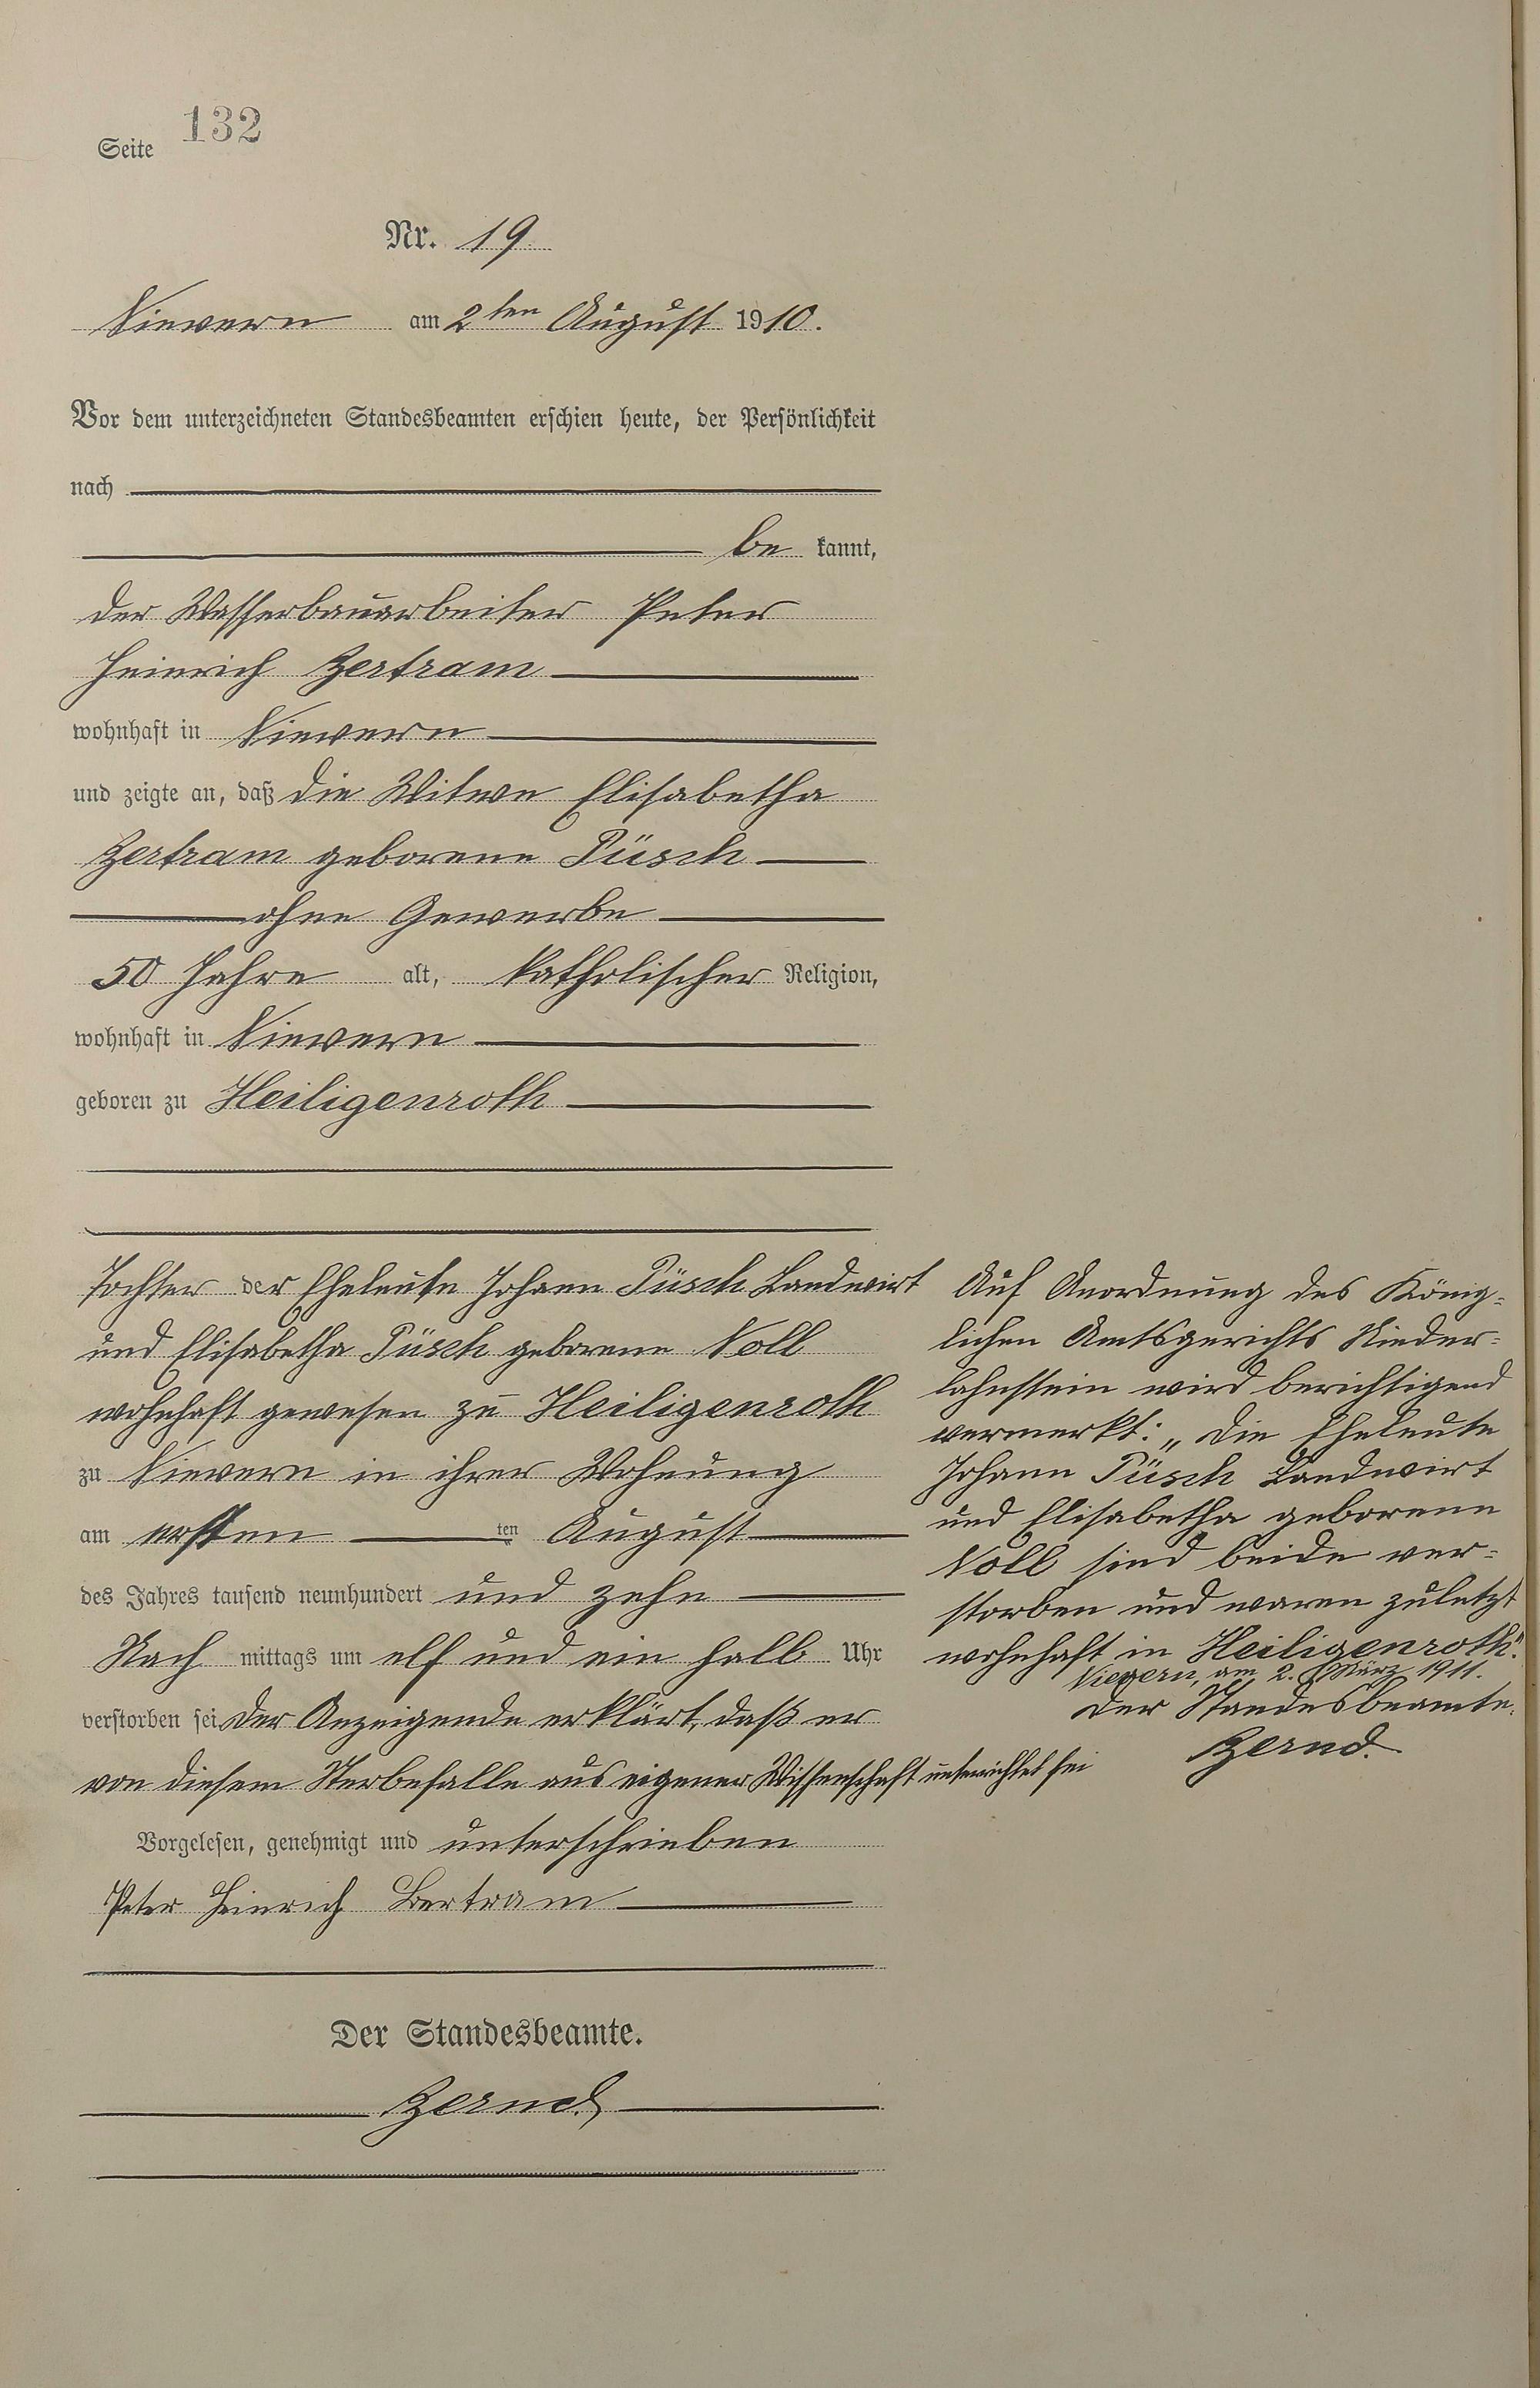 Seite 132
Nr. 19
Nievern am 2ten August 1910.
Vor dem unterzeichneten Standesbeamten erschien heute, der Persönlichkeit
nach
be kannt,
der Wasserbauarbeiter Peter
Heinrich Bertram
wohnhaft in Nievern
und zeigte an, daß die Witwe Elisabetha
Bertram geborene Püsch
ohne Gewerbe
50 Jahre alt, katholischer Religion,
wohnhaft in Nievern
geboren zu Heiligenroth
Tochter der Eheleute Johann Püsch Landwirt
und Elisabetha Püsch geborene Noll
wohnhaft gewesen zu Heiligenroth
zu Nievern in ihrer Wohnung
am ersten ten August
des Jahres tausend neunhundert und zehn
Nach mittags um elf und ein halb Uhr
verstorben sei. Der Anzeigende erklärt, daß er
von diesem Sterbefalle aus eigener Wissenschaft unterrichtet sei
Vorgelesen, genehmigt und unterschrieben
Peter Heinrich Bertram
Der Standesbeamte.
Bernd.
Auf Anordnung des König-
lichen Amtsgerichts Nieder-
lahnstein wird berichtigend
vermerkt: „Die Eheleute
Johann Püsch Landwirt
und Elisabetha geborene
Noll sind beide ver-
storben und waren zuletzt
wohnhaft in Heiligenroth."
Nievern, am 2. März 1911.
Der Standesbeamte.
Bernd.